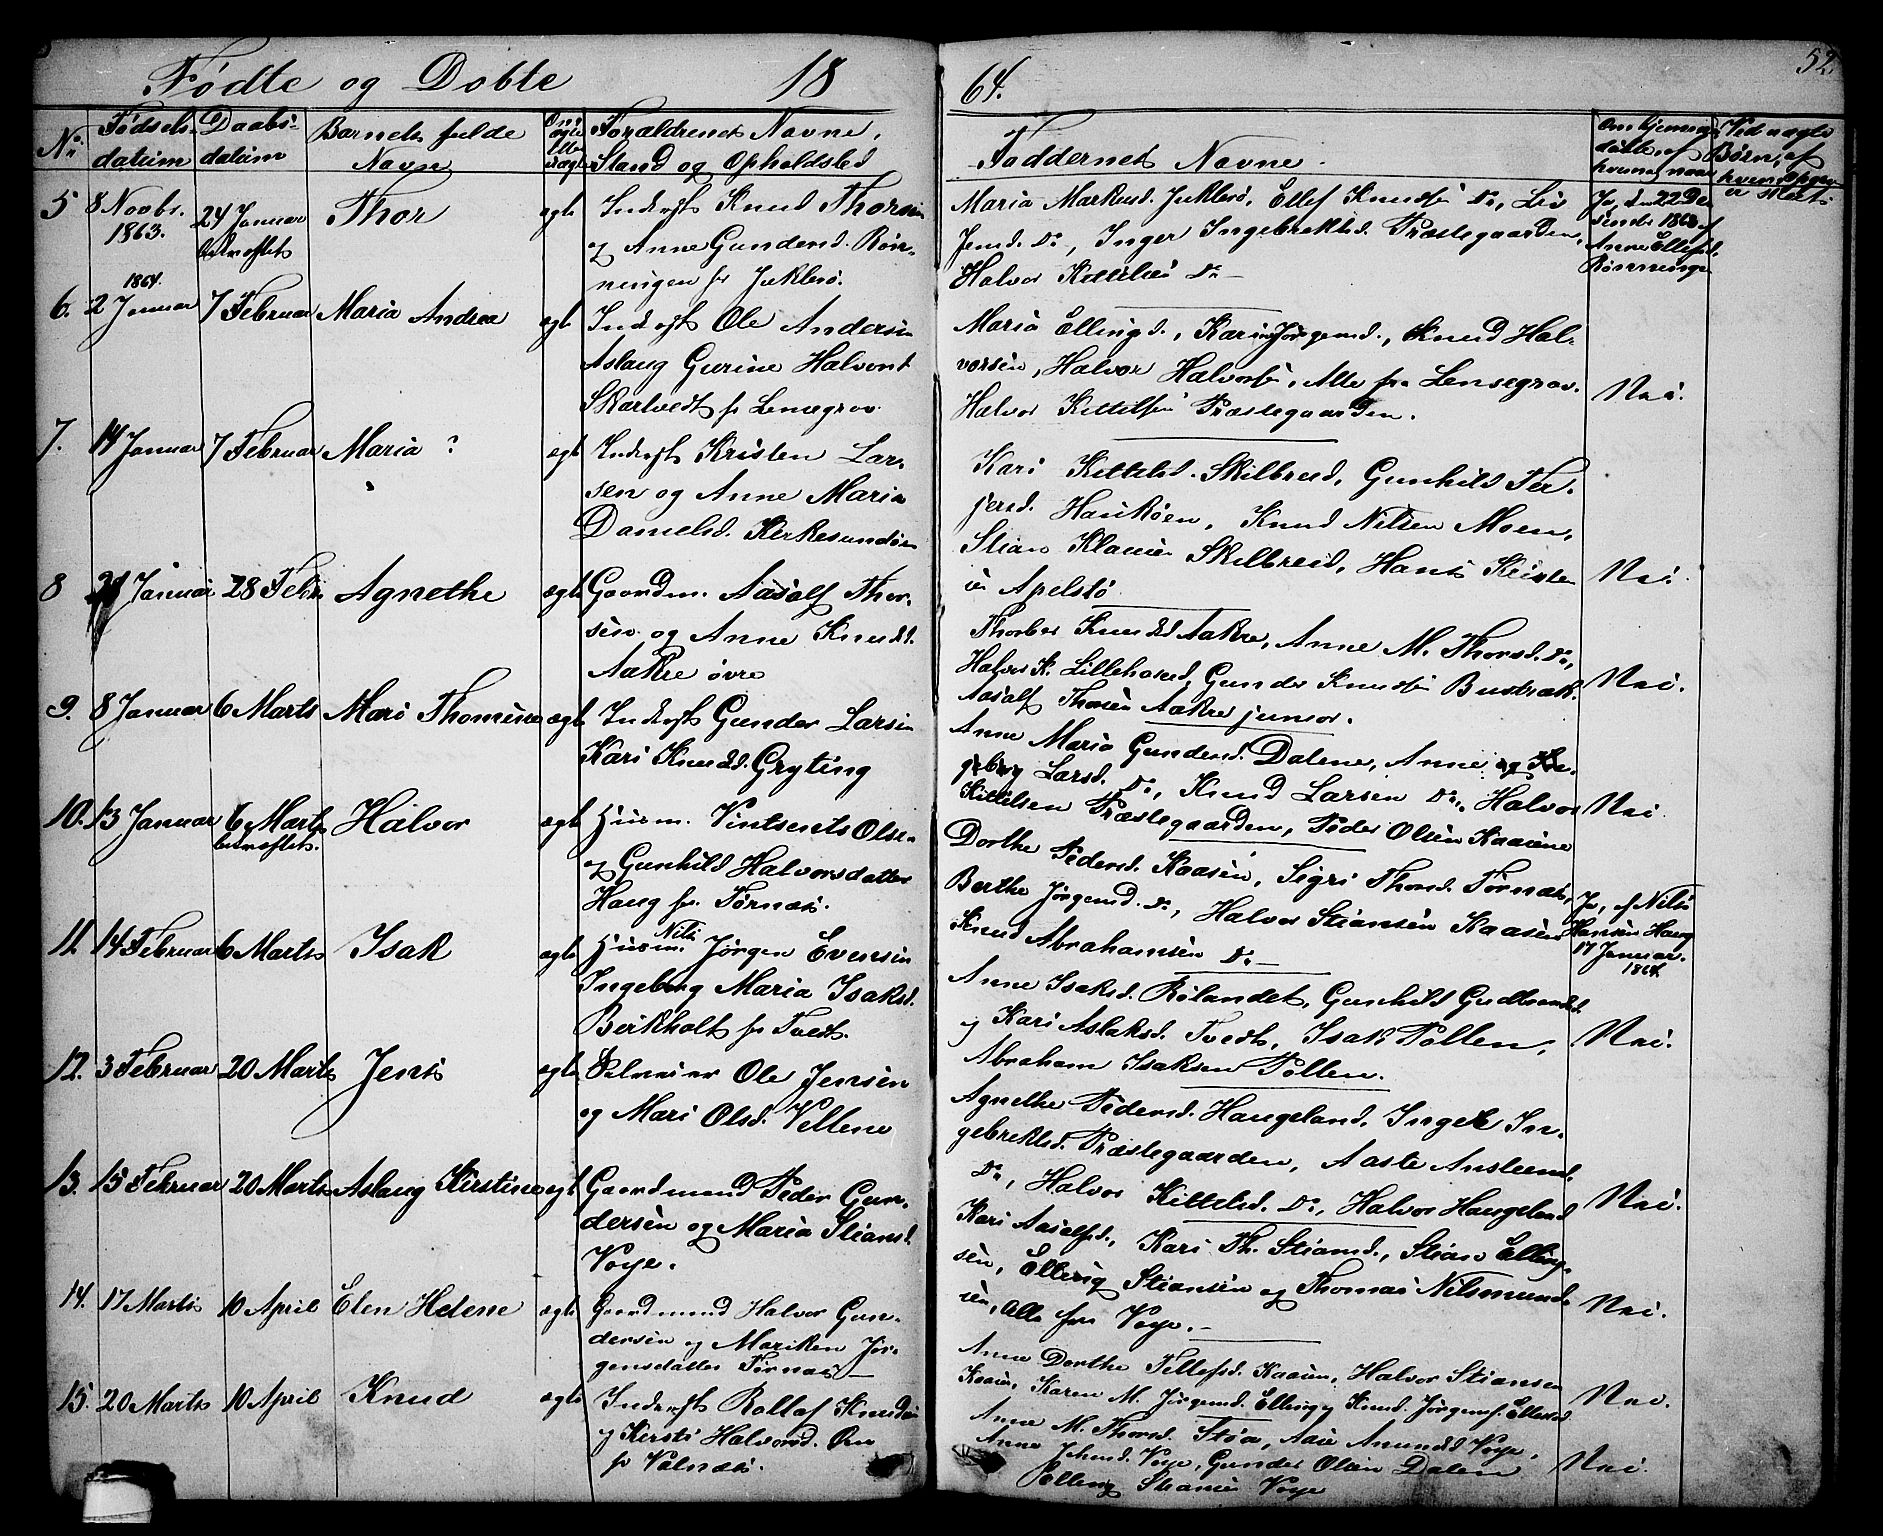 Fødte og Døbte 18
64.
52.
No. Fødsels- Daabs- Barnets fulde Om ægte Forældrenes Navne,
datum datum Navn eller uægte Stand og Opholdssted
Faddernes Navne.
Om hjemme-
døbt, af
hvem, naar
Ved uægte
Børn, af
5 8 Novbr. 24 Januar Thor ægte Inderst Knud Thorsen
1863. bekræftet og Anne Gundersd. Røn-
ningen fr Juklerø.
Maria Markusd. Juklerø, Ellef Knudsen Do, Liv
Jensd. Do, Inger Ingebretsd. Præstegaarden,
Halvor Kittilsen Do
Ja, den 22 De-
1863 af
Anne Ellefsd.
Rønningen
1864.
6. 2 Januar 7 Februar Maria Andrea ægte Inderst Ole Andersen
Aslaug Gurine Halvorsd.
Skarvedt fr Lensegrav.
Maria Ellingsd., Karen Jørgensd., Knud Hal-
vorsen, Halvor Halvorsen, Alle fra Lensegrav.
Halvor Kittilsen Præstegaarden.
Nei.
7. 14 Januar 7 Februar Maria ? ægte Inderst Kristen Lar-
sen og Anne Maria
Danielsd. Kirkesundøen
Kari Kittilsd. Skilbred, Gunhild Ter-
jersd. Haukøen, Knud Nilsen Moen,
Stian Klausen Skilbreid, Hans Kristen-
sen Apelstø
Nei.
8 Januar 28 Febr. Agnethe ægte Gaardm. Aasolf Thor-
sen og Anne Knudsd.
Aakre øvre
Thorbor Knudsd Aakre, Anne M. Thorsd. Do,
Halvor K. Gunder Knudsen Bustrak.
Aasolf Thorsen Aakre junior.
Nei.
9. 8 Januar 6 Marts Mari Thomine ægte Inderst Gunder Larsen
Kari Knudsd. Gryting
Anne Maria Gundersd. Dalene, Anne og In-
geborg Larsd. Do, Knud Larsen Do, Halvor
Kittilsen Præstegaarden, Peder Olsen Kaasene
Nei.
10. 13 Januar 6 Marts Halvor ægte Husm. Vintsents Olsen
bekræftet. og Gunhild Halvorsdatter
Haug fr. Tørnæs.
Dorthe Pedersd. Kaasen, Sigri Thorsd. Tørnæs,
Berthe Jørgensd. Do, Halvor Stiansen Kaasen
Knud Abrahamsen Do
Ja, af Nils
Hansen Haug
17 Januar.
1864.
11. 14 Februar 6 Marts Isak ægte Husm. Nils Jørgen Evensen
Ingeborg Maria Isaksd.
Beirkholt fr Tvedt.
Anne Isaksd. Rølandet, Gunhild
og Kari Aslaksd. Tvedt, Isak Pollen,
Abraham Isaksen Pollen.
Nei.
12. 3 Februar 20 Marts Jens ægte Selveier Ole Jensen
og Mari Olsd. Vellene
Agnethe Pedersd. Haugeland, Ingeb. In-
gebretsd. Præstegaarden, Aaste Ansteensd.
Do, Halvor Kittelsd. Do, Halvor Haugeland
Nei.
13. 15 Februar 20 Marts Aslaug Kirstine ægt Gaardmand Peder Gun-
dersen og Maria Stiansd.
Voje.
Kari Aasolfsd., Kari Th. Stiansd., Stian Elling-
sen, Elling Stiansen og Thomas Nilsmund-
sen, Alle fra Voje.
Nei.
14. 17 Marts 10 April Elen Helene ægte Gaardmand Halvor Gun-
dersen og Mariken Jør-
gensdatter Tørnæs
Anne Dorthe Tellefsd. Kaasen, Halvor Stiansen
Kaasen, Karen M. Jørgensd. Elling Knud Jørgens. Ellested
Nei.
15. 20 Marts 10 April Knud ægte Inderst Rollof Knudsen
og Kirsti Halvorsd. Øen
fr Valnæs.
Anne M. Thorsd. Støa, Aase Amundsd Voje,
Anne Johnsd. Voje, Gunder Olsen Dalen
Elling Stiansen Voje
Nei.